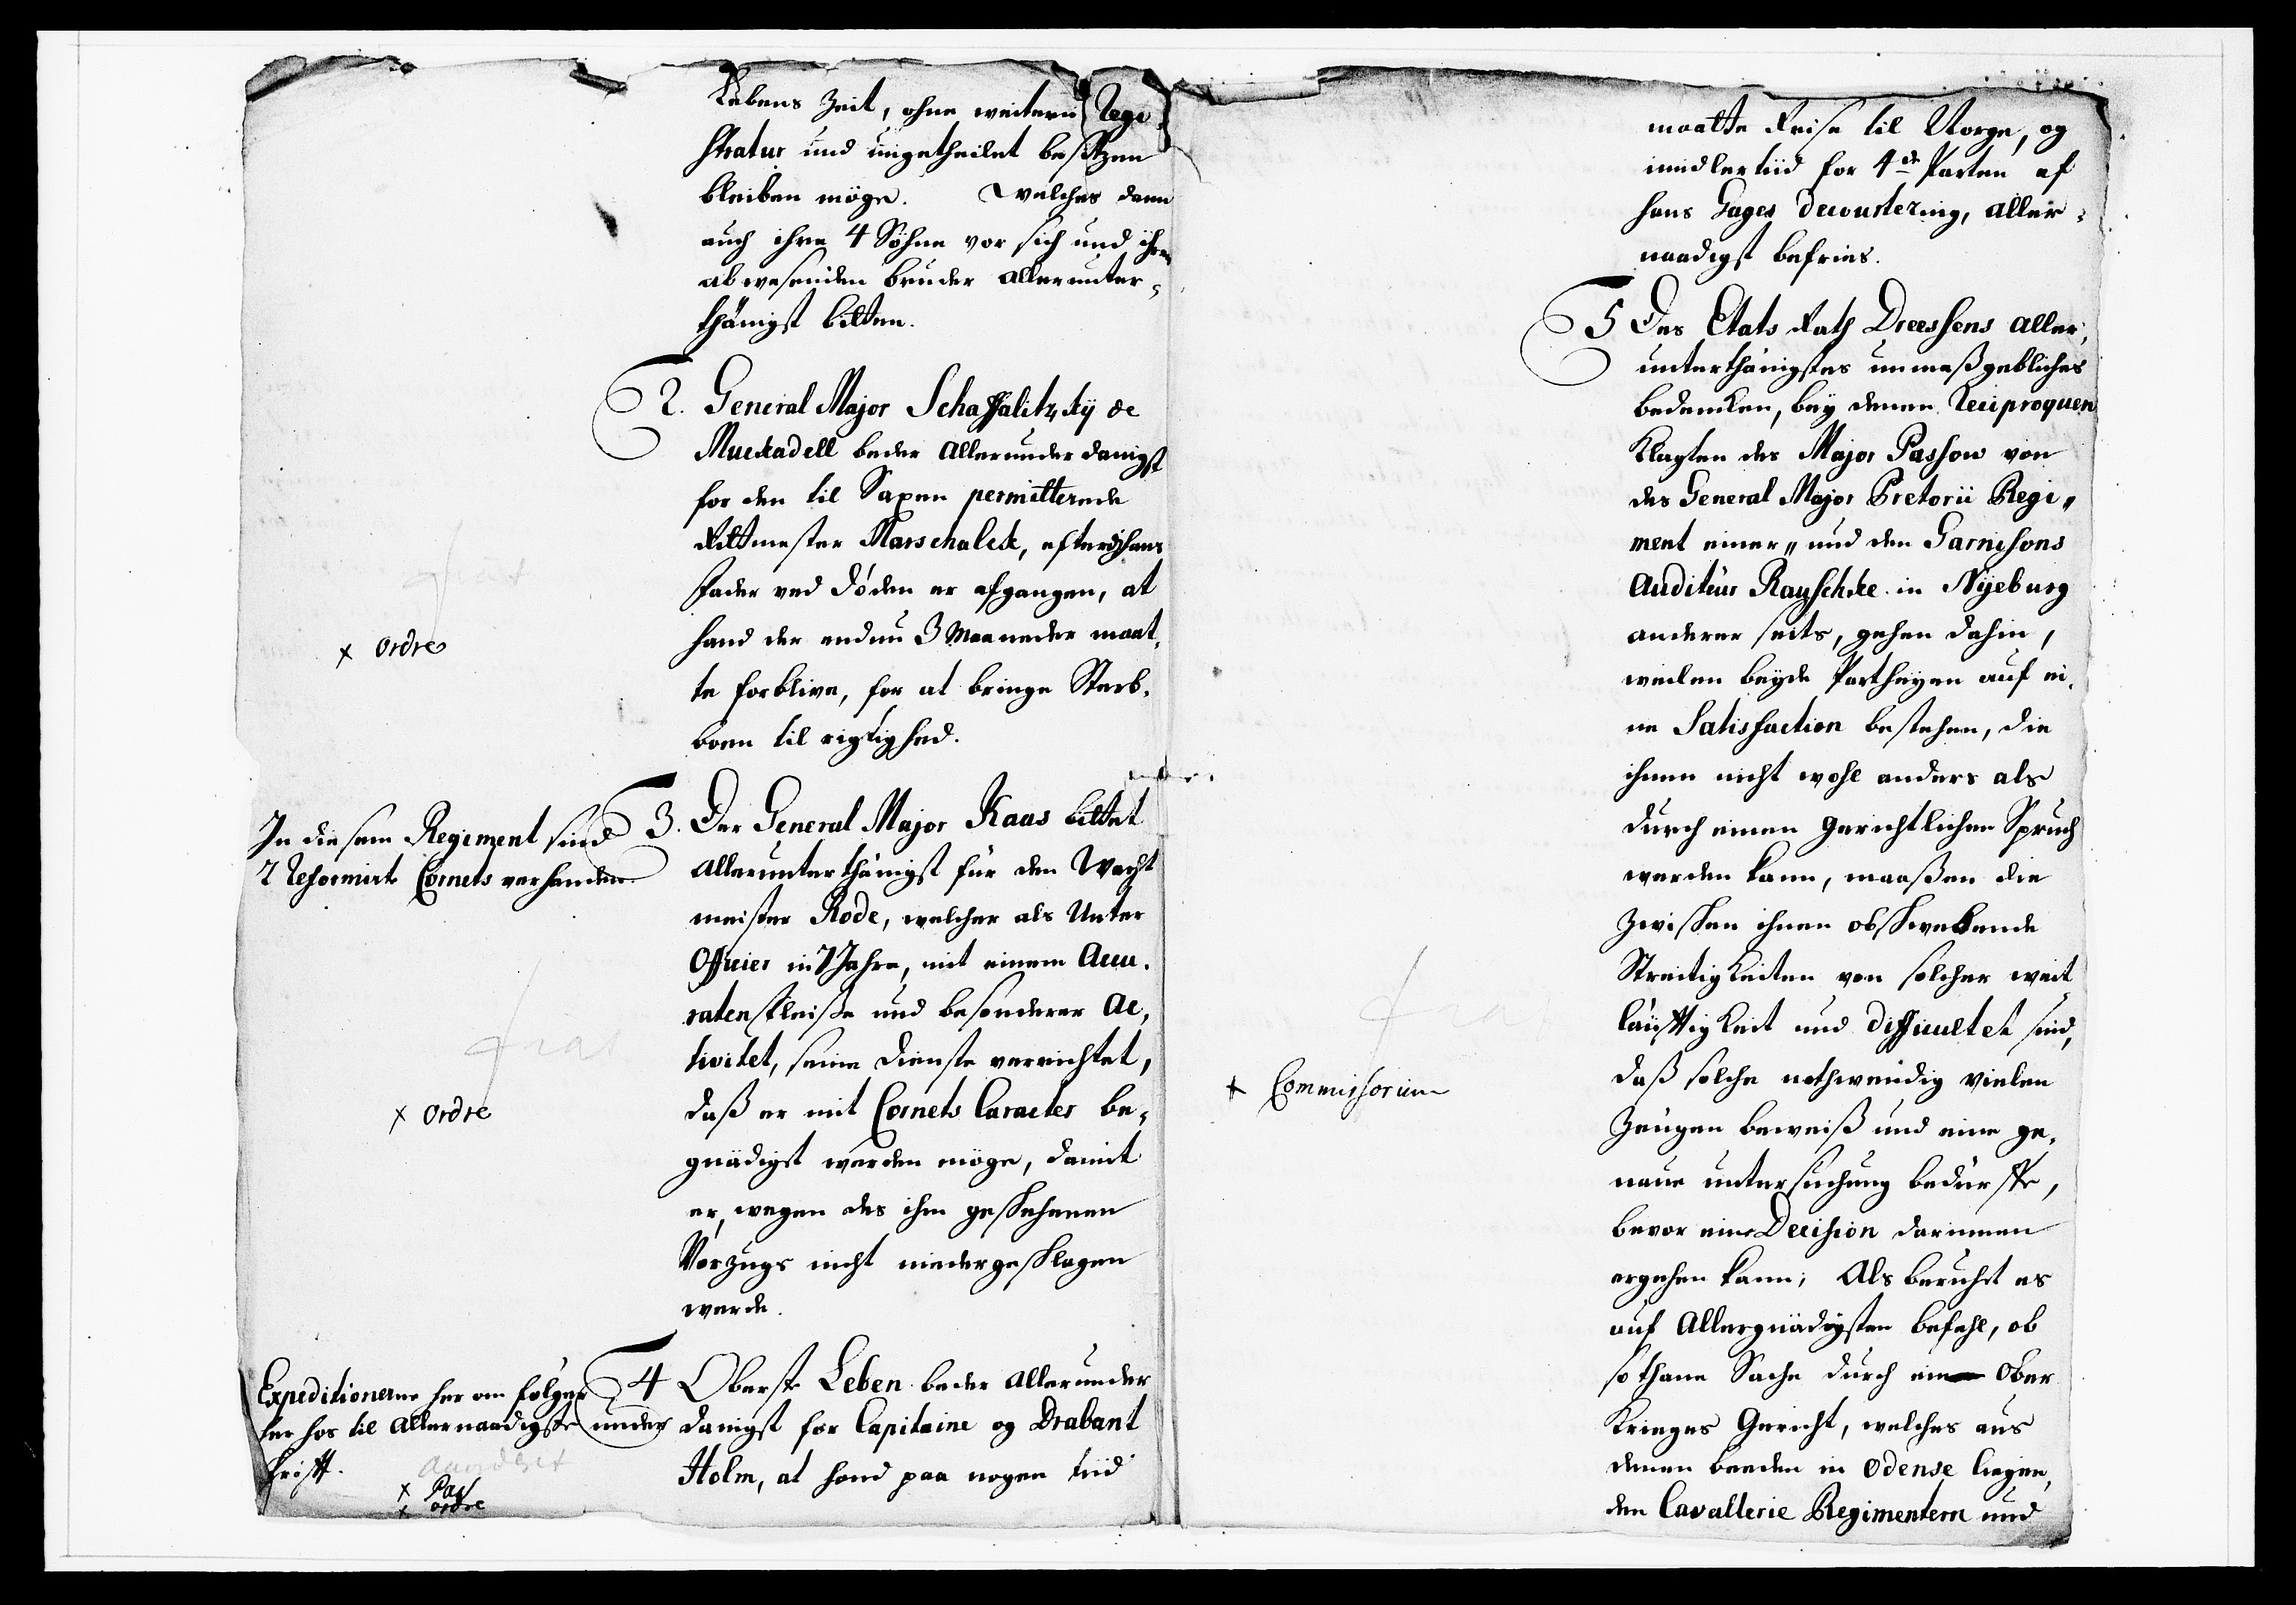 Lebens Zeit, ohne weitere Regi-
stratur und ungetheilet besitzen
bleiben möge. Welches dann
auch ihre 4 Söhne vor sich und ihren
abwesenden bruder allerunter-
thänigst bitten.
2. General Major Schaffalitzkÿ de
Muckadell beder Allerunderdanigst
for den til Saxen permitterede
Rittmester Marschalck, efter hans
Fader ved döden er afgangen, at
hand der endnu 3 Maaneder maat-
te forblive, for at bringe Sterb-
boen til rigtighed.
x Ordre
3. Der General Major Kaas bittet
Allerunterthänigst für den Wacht
meister Rode, welcher als Unter
Officier in 7 Jahre, mit einem Accu-
raten fleisse und besonderer Ac-
tivitet, seine Dienste verrichtet,
daß er mit Cornets Caracter be-
gnädiget werden möge, damit
er, wegen des ihm geschehenen
Vorzugs nicht niedergeschlagen
werde.
In diesem Regiment sind
2 Reformirte Cornets verhanden.
x Ordre
4 Oberste Leben beder Allerunder
danigst for Capitaine og Drabant
Holm, at hand paa nogen tiid
Expeditionerne her om følger
her hos til Allernaadigste under
skrifft.
x Pas
x ordre
maatte Reise til Norge, og
imidlertiid for 4de Parten af
hans Gages decourtering, aller-
naadigst befries.
5 Des Etats Rath Dreessens aller-
unterthänigstes unmaßgebliches
bedencken, beÿ denen Reciproquen
Klagten des Major Passow von
des General Major Pretorii Regi-
ment einer- und den Garnisons
Auditeur Rauschke in Nÿeburg
anderer seits, gehen dahin,
weilen beÿde Partheÿen auf ei-
ne Satisfaction bestehen, die
ihnen nicht wohl anders als
durch einen gerichtlichen Spruch
werden kann, maaßen die
zwischen ihnen obschwebende
Streitigkeiten von solcher weit-
läufftigkeit und difficultet sind,
daß solche nothwendig vielen
Zeugen beweiß und eine ge-
naue untersuchung bedürffe,
bevor eine Decision darinnen
ergehen kann; Als beruhet es
auf Allergnädigsten befehl, ob
sothane Sache durch ein Ober
Krieges Gericht, welches aus
denen beeden in Odense liegen-
den Cavallerie Regimentern und
x Commissorium